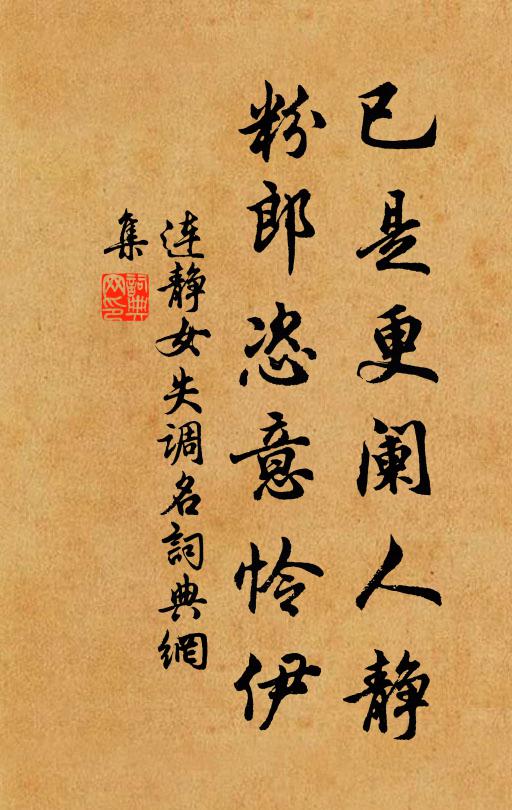 已是更阑人静
粉郎恣意怜伊
连静女失调名詞典網
集
詞典
网印